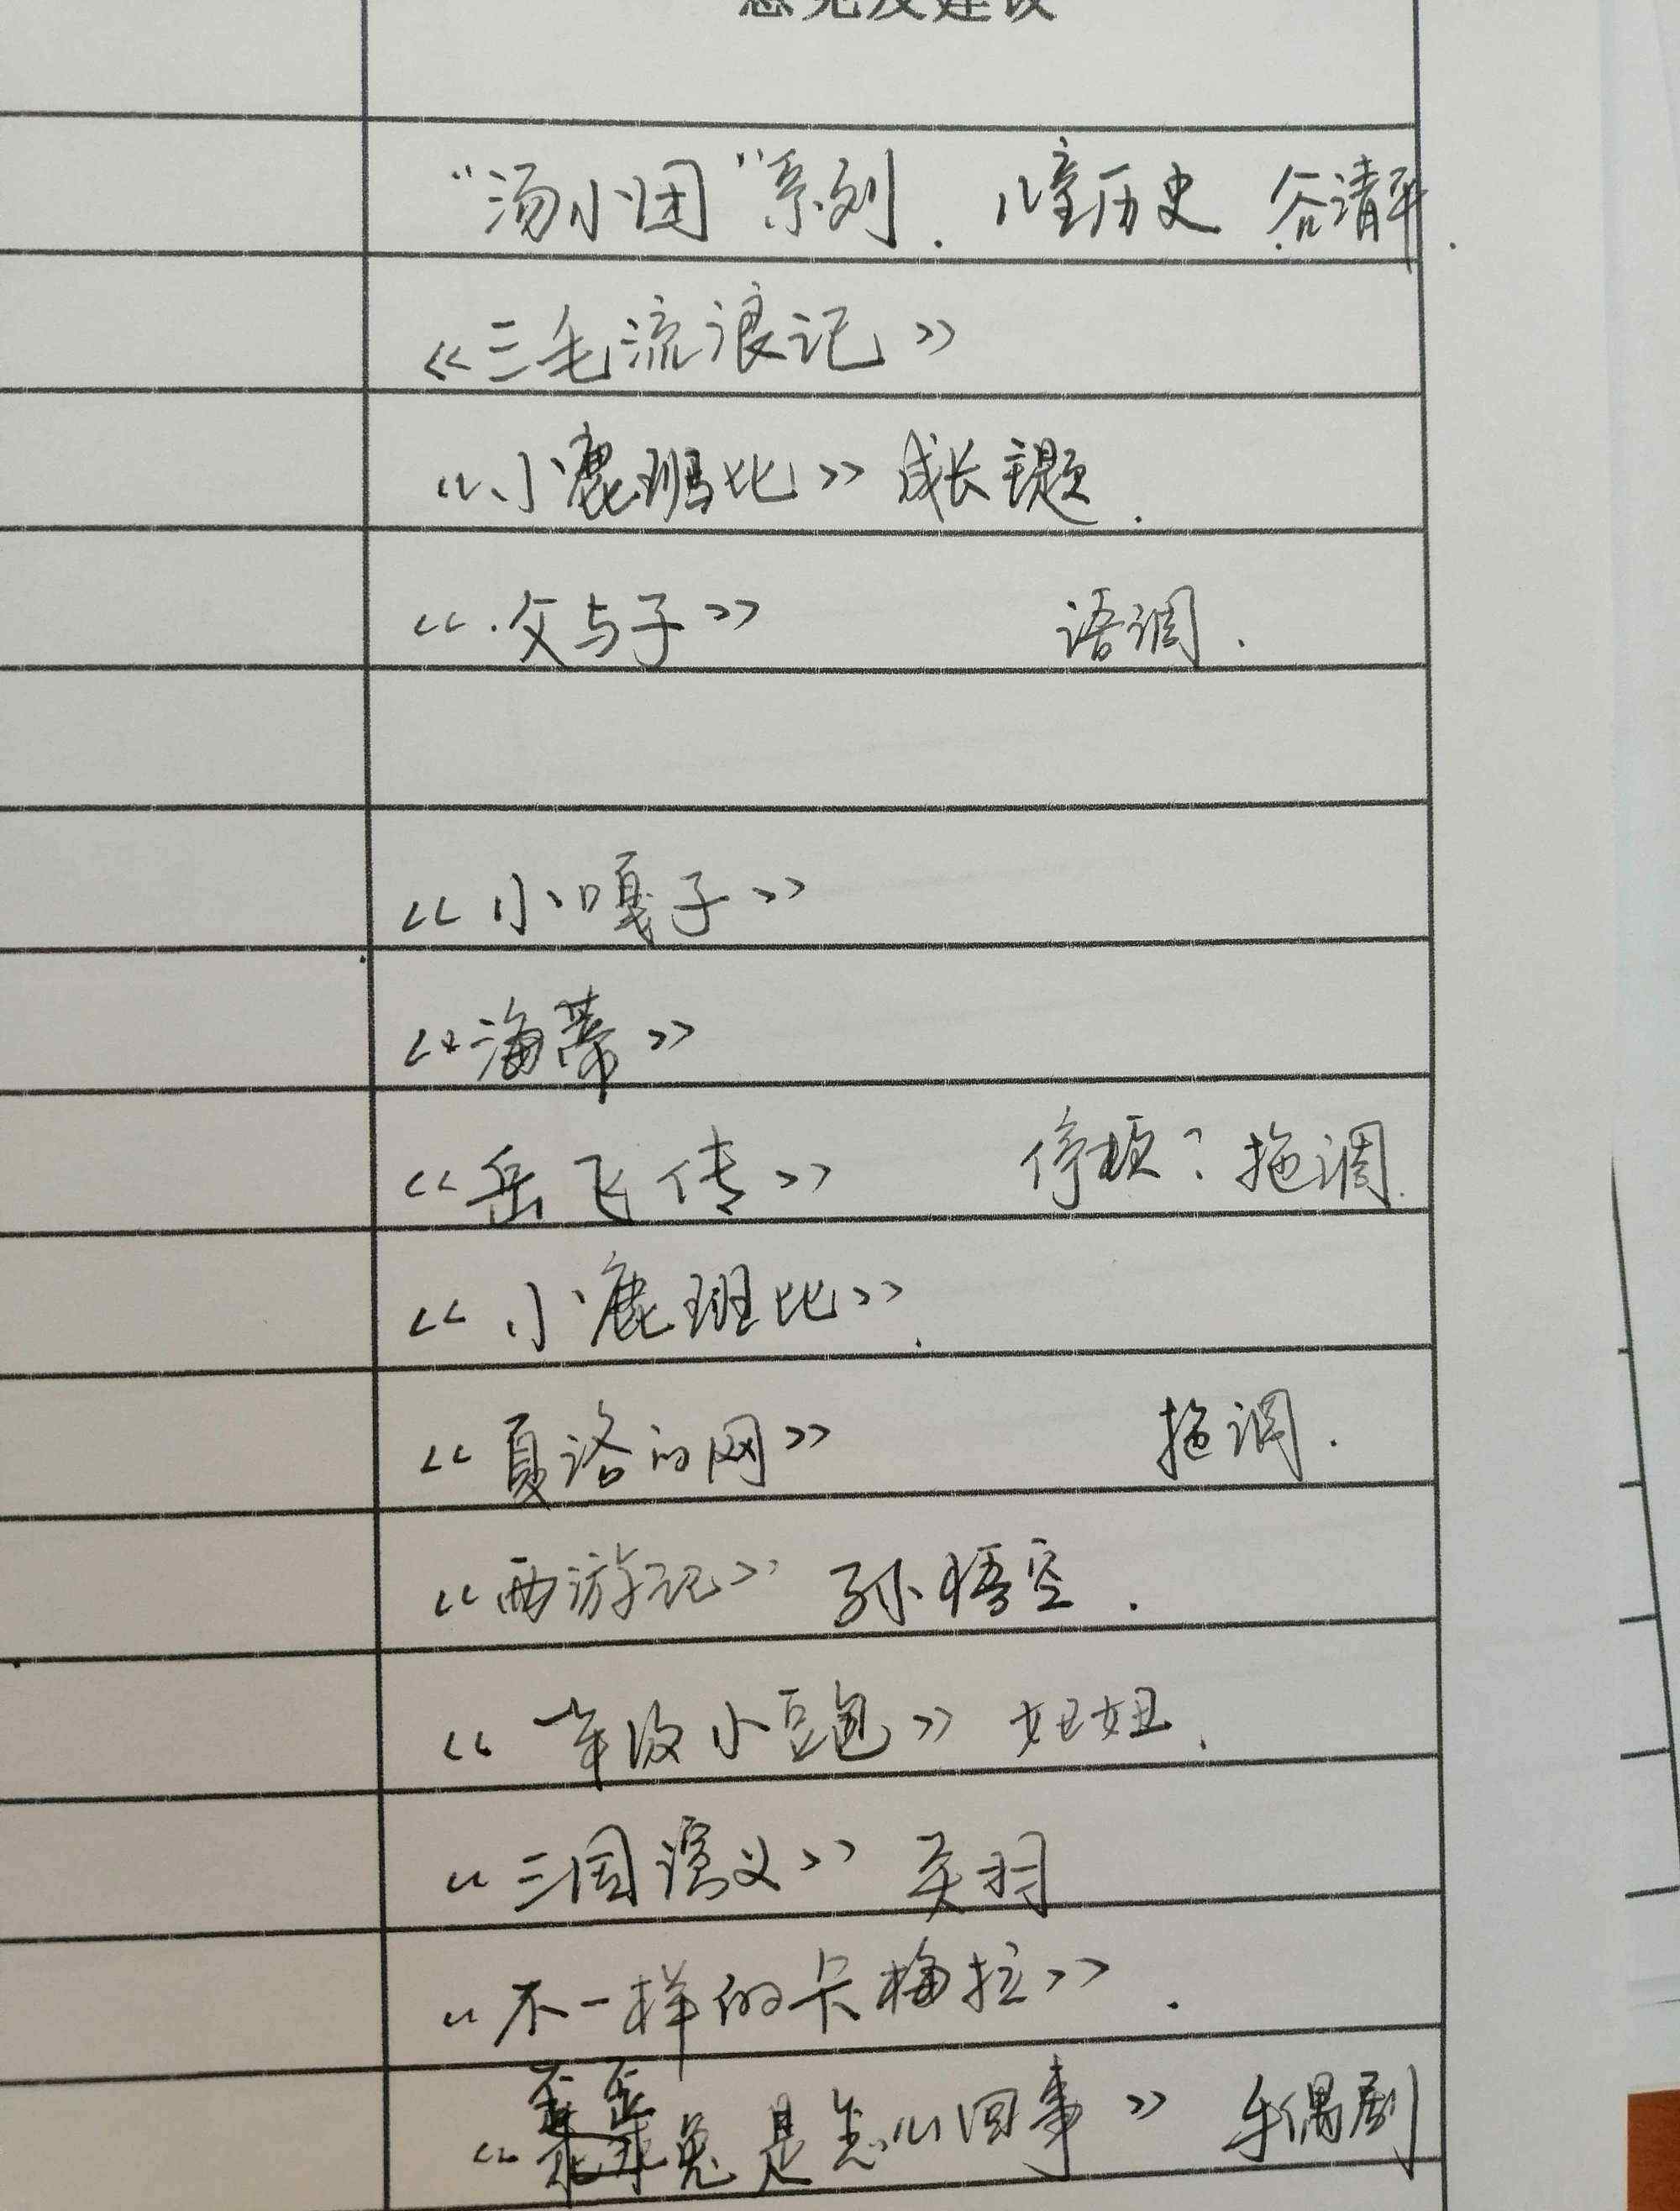 意见及建议
"汤小团"系列. 儿童历史 谷清平.
《三毛流浪记》
《小鹿班比》成长主题.
《父与子》 语调.
《小嘎子》
《海蒂》
《岳飞传》 停顿? 拖调.
《小鹿班比》.
《夏洛的网》 拖调.
《西游记》 孙悟空.
《一年级小豆包》 妞妞.
《三国演义》 关羽
《不一样的卡梅拉》.
《歪歪兔是怎么回事》 手偶剧